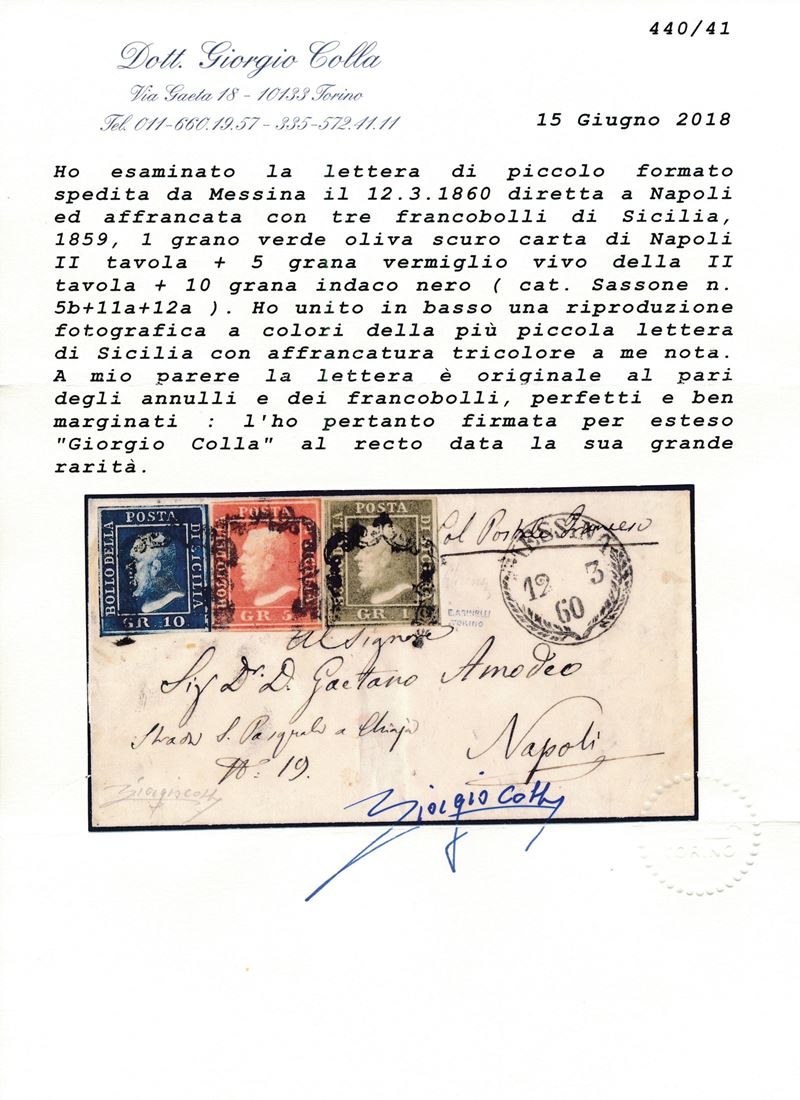 440/41
Dott. Giorgio Colla
Via Gaeta 18 - 10133 Torino
Tel. 011-660.19.57 - 335-572.41.11
15 Giugno 2018
Ho esaminato la lettera di piccolo formato
spedita da Messina il 12.3.1860 diretta a Napoli
ed affrancata con tre francobolli di Sicilia,
1859, 1 grano verde oliva scuro carta di Napoli
II tavola + 5 grana vermiglio vivo della II
tavola + 10 grana indaco nero ( cat. Sassone n.
5b+11a+12a ). Ho unito in basso una riproduzione
fotografica a colori della più piccola lettera
di Sicilia con affrancatura tricolore a me nota.
A mio parere la lettera è originale al pari
degli annulli e dei francobolli, perfetti e ben
marginati : l'ho pertanto firmata per esteso
"Giorgio Colla" al recto data la sua grande
rarità.
BOLLO DELLA POSTA DI SICILIA
GR. 10
POSTA
GR. 5
POSTA
GR. 1
Col Postale
MESSINA
12 3
60
TORINO
Al Signore
Sig. Dr. D. Gaetano Amodeo
Strada S. Pasquale a Chiaja
N°. 19.
Napoli
Giorgio Colla
Giorgio Colla
TORINO